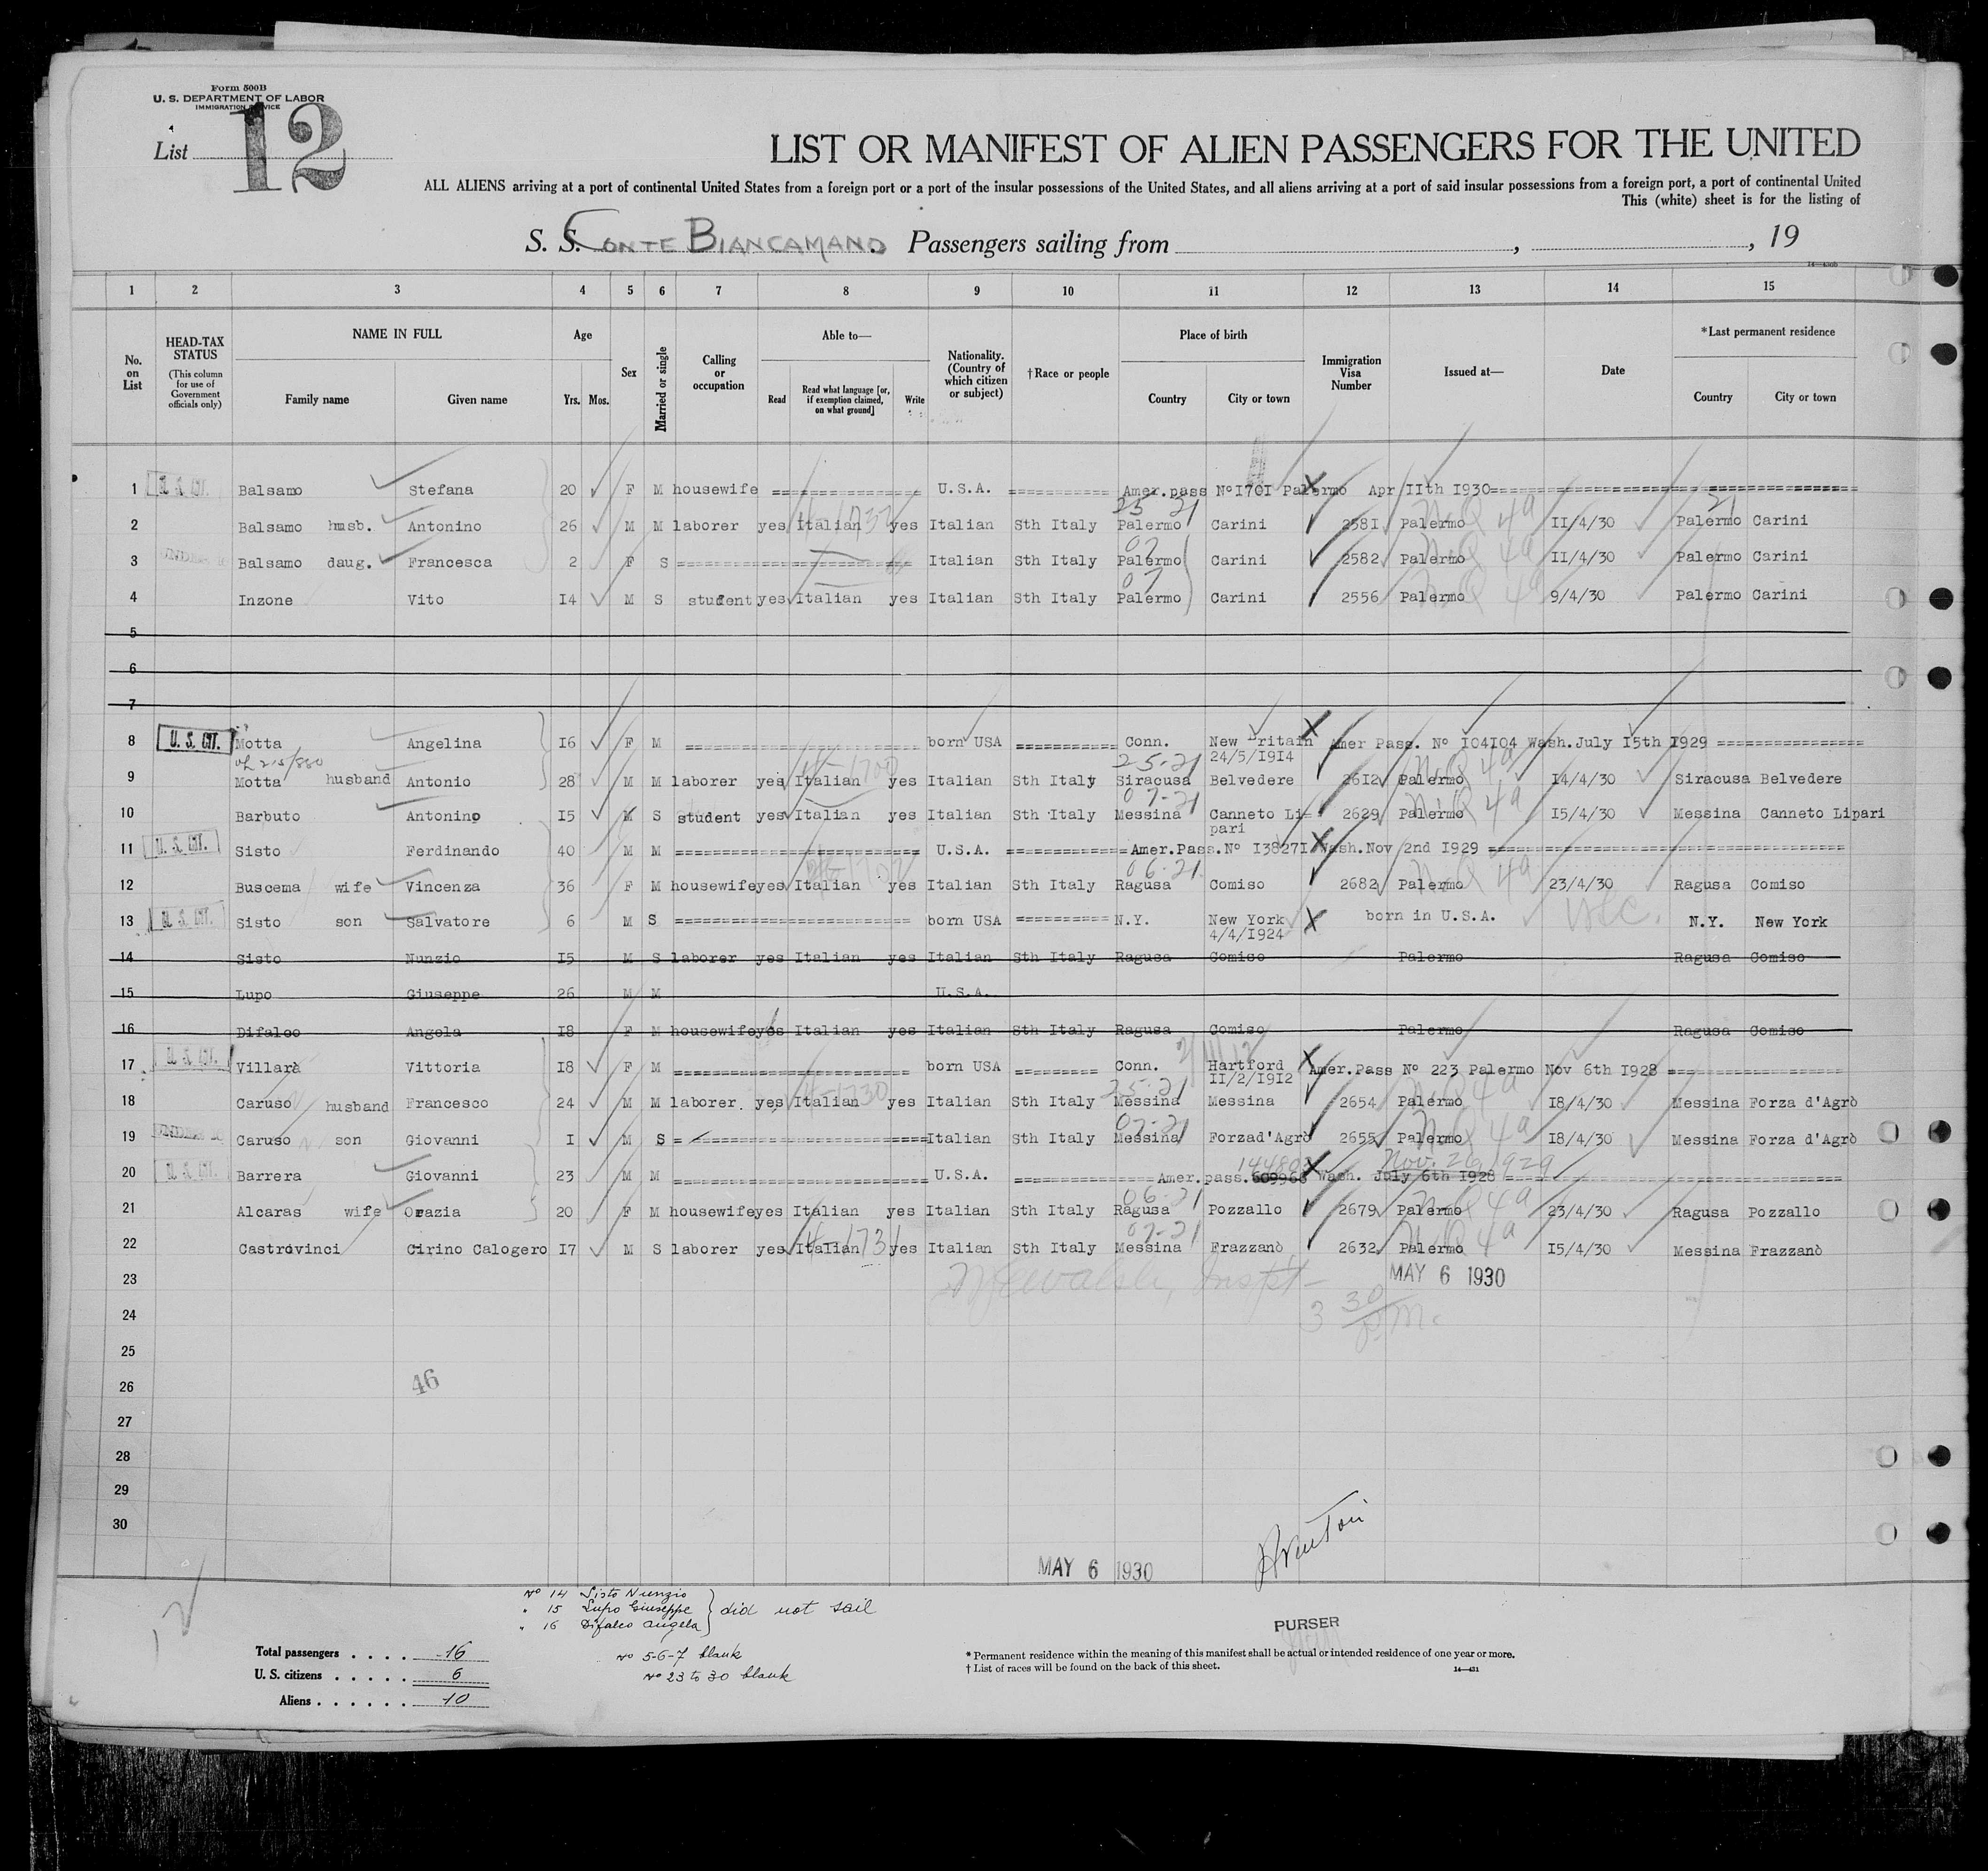 Form 500B
U. S. DEPARTMENT OF LABOR
IMMIGRATION SERVICE
List 12
LIST OR MANIFEST OF ALIEN PASSENGERS FOR THE UNITED
ALL ALIENS arriving at a port of continental United States from a foreign port or a port of the insular possessions of the United States, and all aliens arriving at a port of said insular possessions from a foreign port, a port of continental United
This (white) sheet is for the listing of
S. S. CONTE BIANCAMANO Passengers sailing from , , 19
1 2 3 4 5 6 7 8 9 10 11 12 13 14 15
No. on List
HEAD-TAX STATUS (This column for use of Government officials only)
NAME IN FULL Family name Given name
Age Yrs. Mos.
Sex
Married or single
Calling or occupation
Able to— Read Read what language [or, if exemption claimed, on what ground] Write
Nationality. (Country of which citizen or subject)
†Race or people
Place of birth Country City or town
Immigration Visa Number
Issued at—
Date
*Last permanent residence Country City or town
1 U.S. CIT. Balsamo Stefana 20 F M housewife U.S.A. Amer.pass Nº I70I Palermo Apr IIth I930
25 21 21
2 Balsamo husb. Antonino 26 M M laborer yes Italian yes Italian Sth Italy Palermo Carini 258I Palermo II/4/30 Palermo Carini
07
3 Balsamo daug. Francesca 2 F S Italian Sth Italy Palermo Carini 2582 Palermo II/4/30 Palermo Carini
07
4 Inzone Vito I4 M S student yes Italian yes Italian Sth Italy Palermo Carini 2556 Palermo 9/4/30 Palermo Carini
5
6
7
8 U. S. CIT. Motta Angelina I6 F M born USA Conn. New Britain Amer Pass. Nº I04I04 Wash.July I5th I929
24/5/I9I4
25-21
9 Motta husband Antonio 28 M M laborer yes Italian yes Italian Sth Italy Siracusa Belvedere 26I2 Palermo I4/4/30 Siracusa Belvedere
07-21
10 Barbuto Antonino I5 M S student yes Italian yes Italian Sth Italy Messina Canneto Li= 2629 Palermo I5/4/30 Messina Canneto Lipari
pari
11 U.S. CIT. Sisto Ferdinando 40 M M U.S.A. Amer.Pass.Nº I3827I Wash.Nov 2nd I929
06-21
12 Buscema wife Vincenza 36 F M housewife yes Italian yes Italian Sth Italy Ragusa Comiso 2682 Palermo 23/4/30 Ragusa Comiso
13 U.S. CIT. Sisto son Salvatore 6 M S born USA N.Y. New York born in U.S.A. N.Y. New York
4/4/I924
14 Sisto Nunzio I5 M S laborer yes Italian yes Italian Sth Italy Ragusa Comiso Palermo Ragusa Comiso
15 Lupo Giuseppe 26 M M U.S.A.
16 Difalco Angela I8 F M housewife yes Italian yes Italian Sth Italy Ragusa Comiso Palermo Ragusa Comiso
17 U.S. CIT. Villarà Vittoria I8 F M born USA Conn. Hartford Amer.Pass Nº 223 Palermo Nov 6th I928
II/2/I9I2
25-21
18 Caruso husband Francesco 24 M M laborer. yes Italian yes Italian Sth Italy Messina Messina 2654 Palermo I8/4/30 Messina Forza d'Agrò
07-21
19 Caruso son Giovanni I M S Italian Sth Italy Messina Forzad'Agrò 2655 Palermo I8/4/30 Messina Forza d'Agrò
Nov. 26 1929
20 U.S. CIT. Barrera Giovanni 23 M M U.S.A. Amer.pass.609968 Wash. July 6th I928
06-21
21 Alcaras wife Orazia 20 F M housewife yes Italian yes Italian Sth Italy Ragusa Pozzallo 2679 Palermo 23/4/30 Ragusa Pozzallo
07-21
22 Castrovinci Cirino Calogero I7 M S laborer yes Italian yes Italian Sth Italy Messina Frazzanò 2632 Palermo I5/4/30 Messina Frazzanò
23 MAY 6 1930
24 3 30 P.M.
25
26 46
27
28
29
30
MAY 6 1930
Nº 14 Sisto Nunzio
" 15 Lupo Giuseppe } did not sail
" 16 Difalco Angela
Nº 5-6-7 blank
Nº 23 to 30 blank
PURSER
Total passengers 16
U. S. citizens 6
Aliens 10
* Permanent residence within the meaning of this manifest shall be actual or intended residence of one year or more.
† List of races will be found on the back of this sheet.
14—431